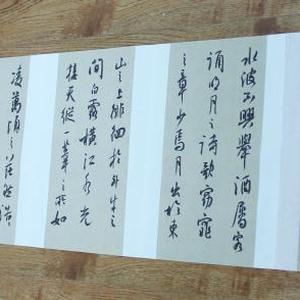 水波不興舉酒屬客
誦明月之詩歌窈窕
之章少焉月出於東
山之上徘徊於斗牛之
間白露橫江水光
接天縱一葦之所如
凌萬頃之茫然浩